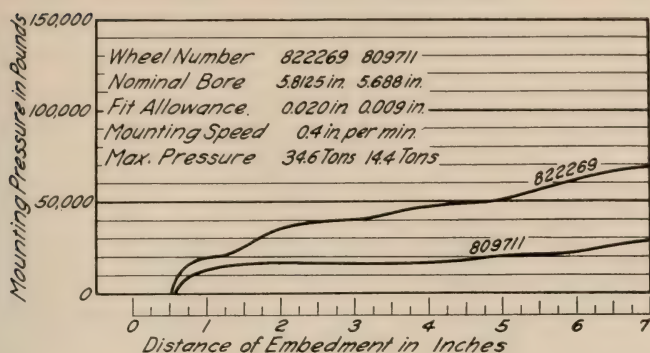 Mounting Pressure in Pounds
150,000
100,000
50,000
0
Wheel Number 822269 809711
Nominal Bore 5.8125 in. 5.688 in.
Fit Allowance. 0.020 in. 0.009 in.
Mounting Speed 0.4 in. per min.
Max. Pressure 34.6 Tons 14.4 Tons
822269
809711
0 1 2 3 4 5 6 7
Distance of Embedment in Inches